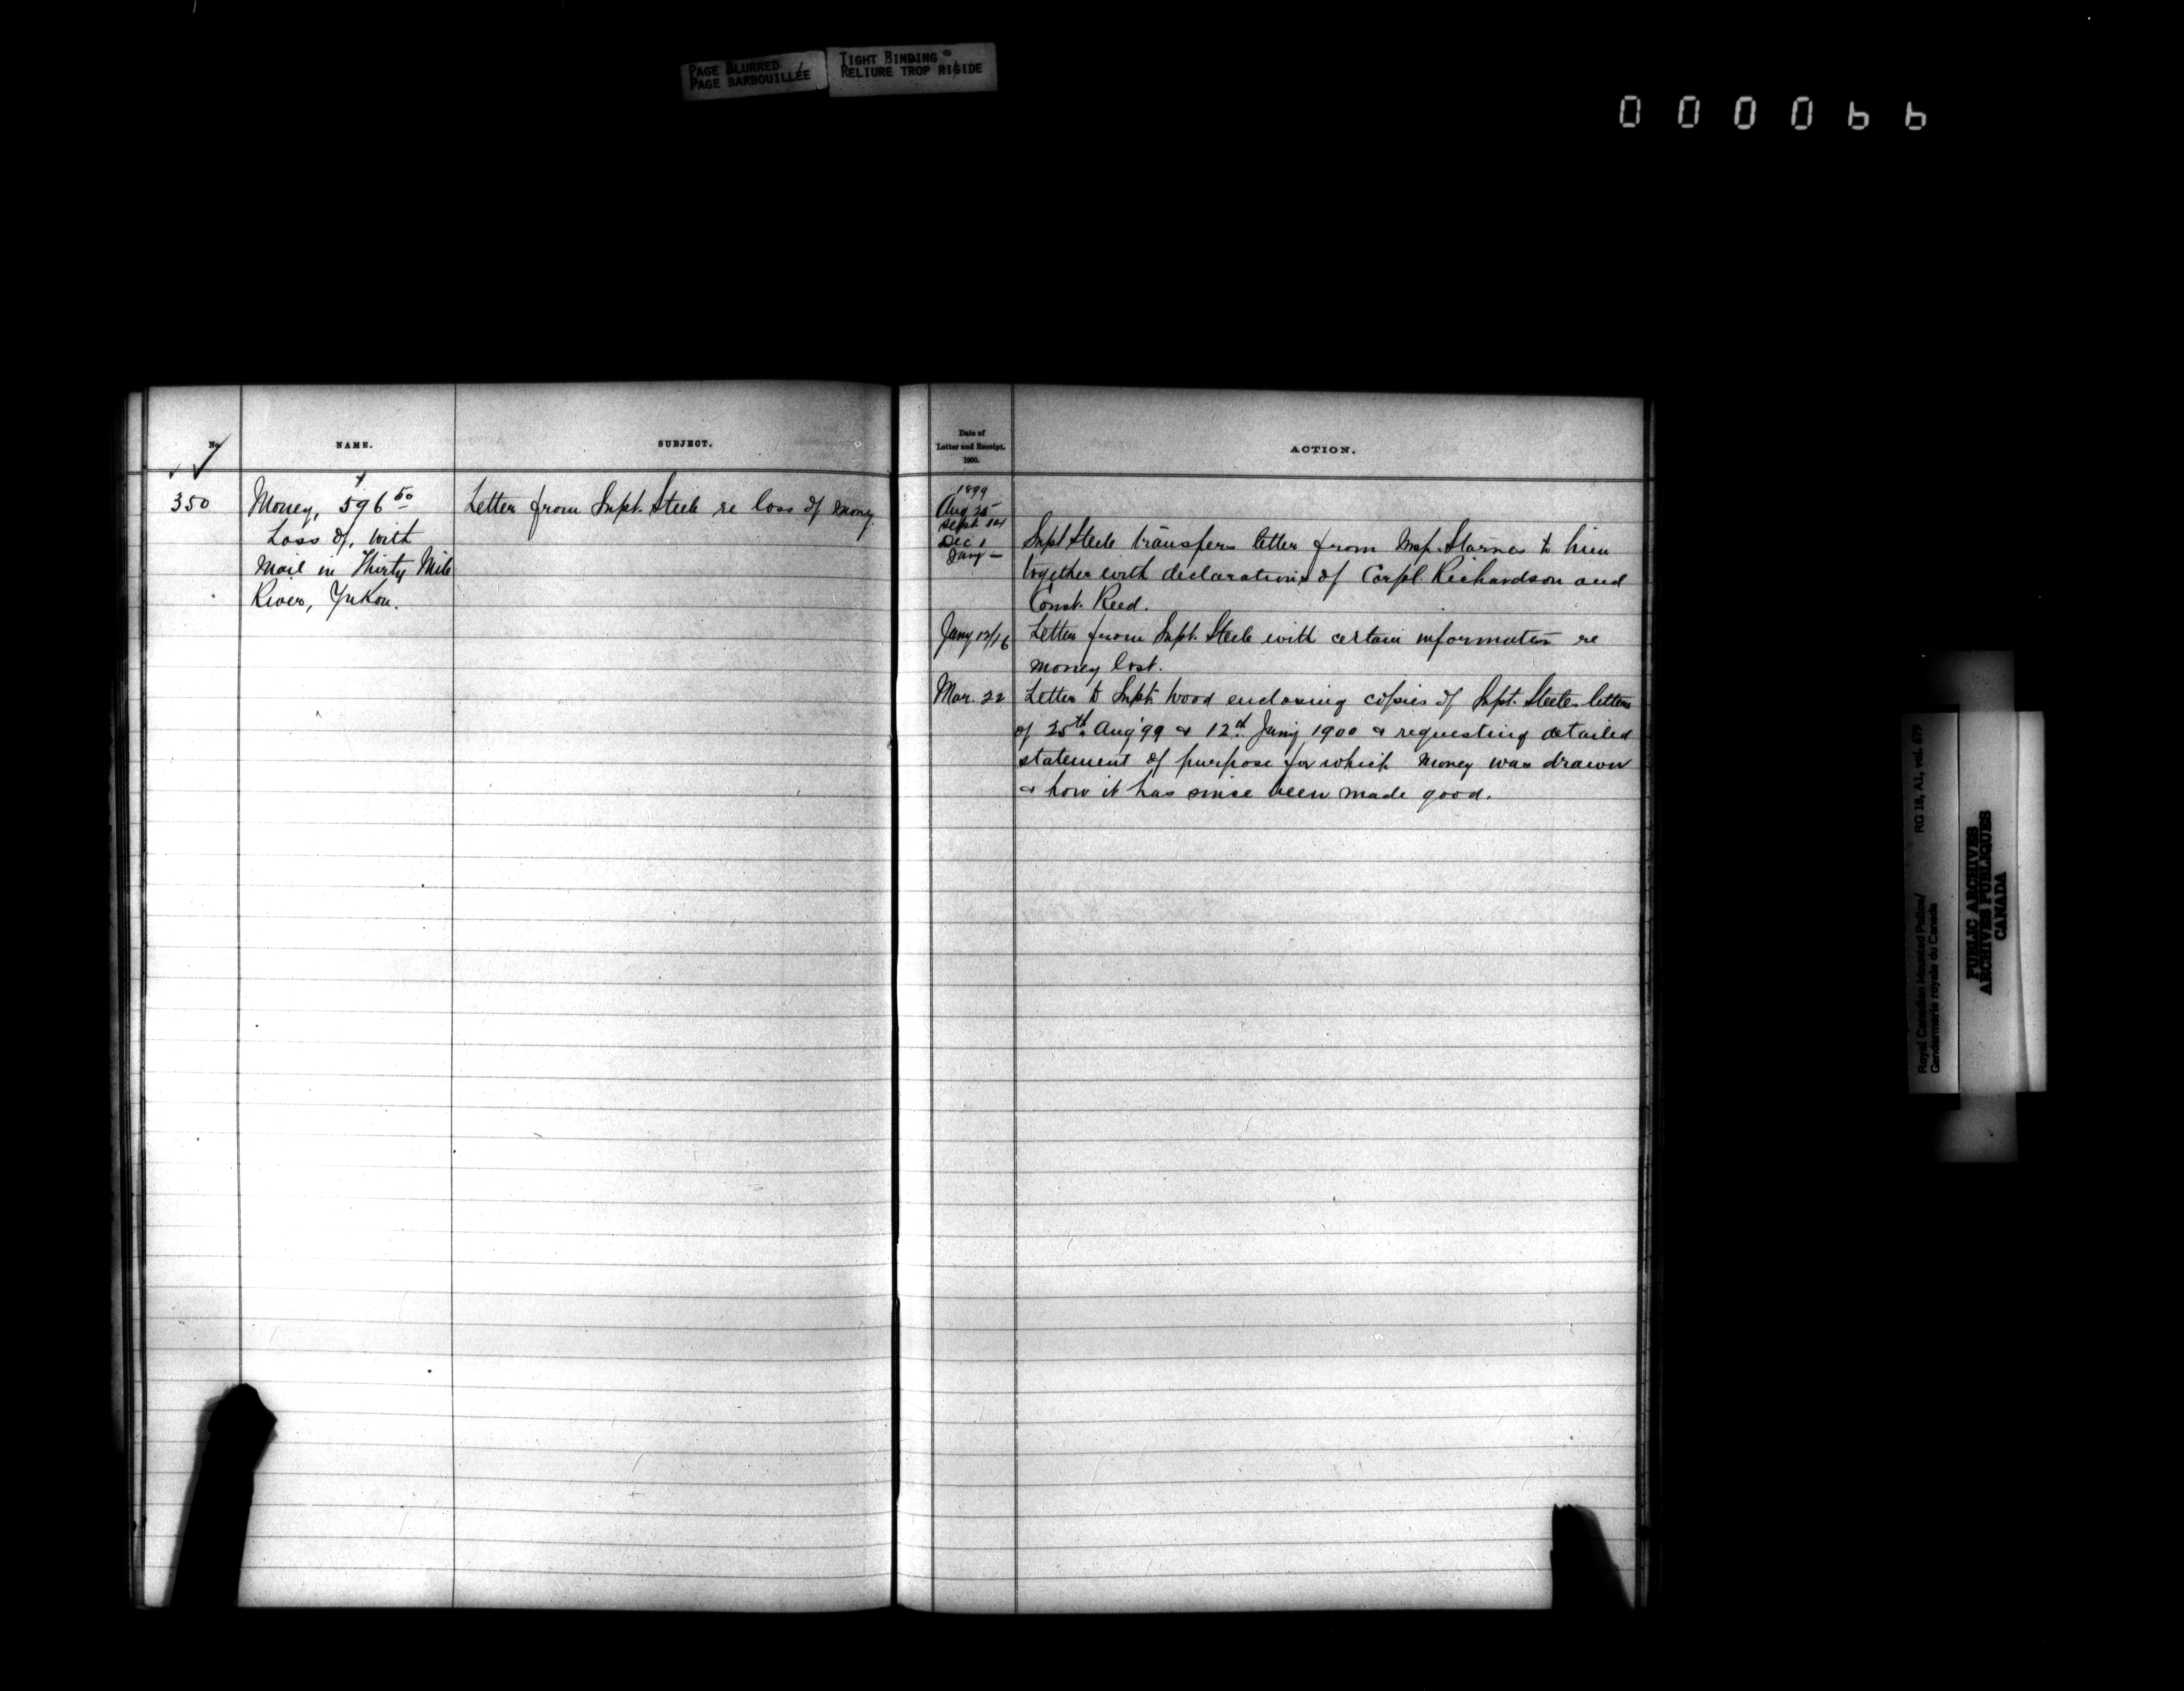 PAGE BLURRED
PAGE BARBOUILLÉE
TIGHT BINDING
RELIURE TROP RIGIDE
000066
No
NAME.
SUBJECT.
350
Money, 596 50
Loss of, with
Mail in Thirty Mile
River, Yukon.
Letter from Supt. Steele re loss of money.
Date of
Letter and Receipt.
1900.
ACTION.
1899
Aug 25
Sept 14
Dec 1
Jany —
Supt Steele transfers letter from Insp. Starnes to him
together with declarations of Corpl. Richardson and
Const. Reed.
Jany 12/16 Letter from Supt. Steele with certain information re
money lost.
Mar. 22 Letter to Supt. Wood enclosing copies of Supt. Steele's letters
of 25th Aug '99 & 12th Jany 1900 & requesting detailed
statement of purpose for which money was drawn
& how it has since been made good.
Royal Canadian Mounted Police/ RG 18, A1, vol. 679
Gendarmerie royale du Canada
PUBLIC ARCHIVES
ARCHIVES PUBLIQUES
CANADA